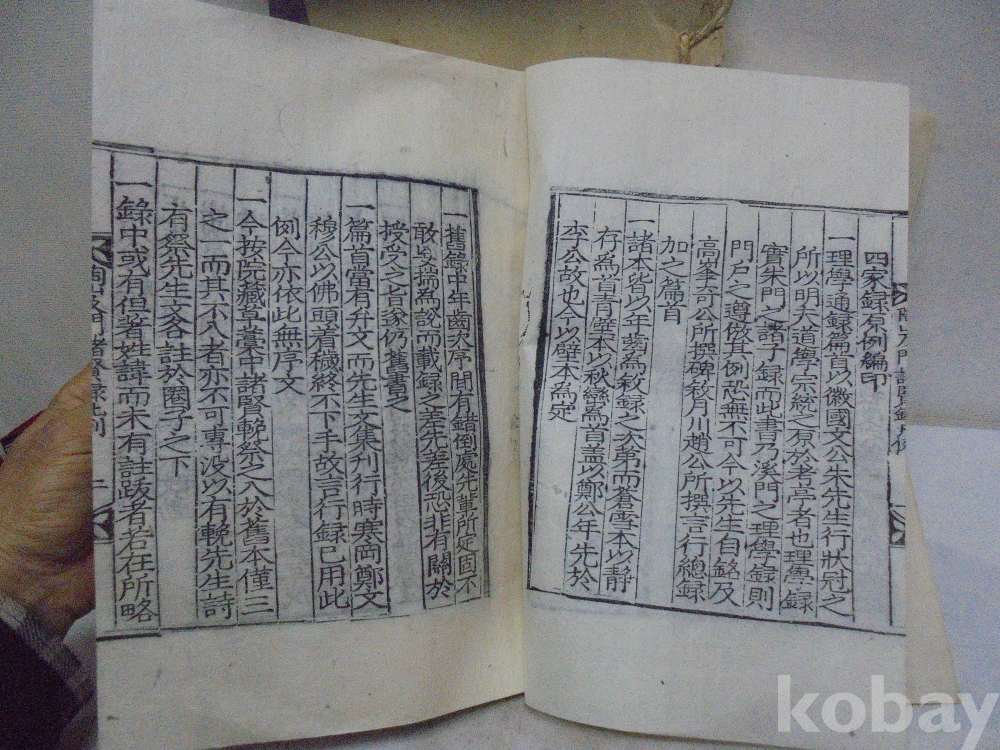 四家録原例編印
一理學通錄篇首以徽國文公朱先生行狀冠之
所以明夫道學宗統之有於考亭者也理學録
實朱門之諸子録而此書乃溪門之理學録則
門戶之遵倣其例恐無不可今以先生自銘及
高峯奇公所撰碑敘月川趙公所撰言行總録
加之篇首
一諸本皆以年齒為敘録之次第而蒼雪本以靜
存為首青壁本以秋巒為首盖以鄭公年先於
李公故也今以壁本為定
一舊錄中年齒次序間有錯倒處先輩所定固不
敢
瑞為說而載録之差先差後恐非有關於
授受之者遂仍舊書之
一篇首當有弁文而先生文集刊行時寒岡鄭文
穆公以佛頭着穢終不下手故言行録已用此
例今亦依此無序文
一今按院藏草藁中諸賢輓祭之入於舊本僅二
之一而其不入者亦不可專沒以有輓先生詩
有祭先生文各註於圈子之下
一錄中或有但著姓諱而未有註跋者若在所略
kobay